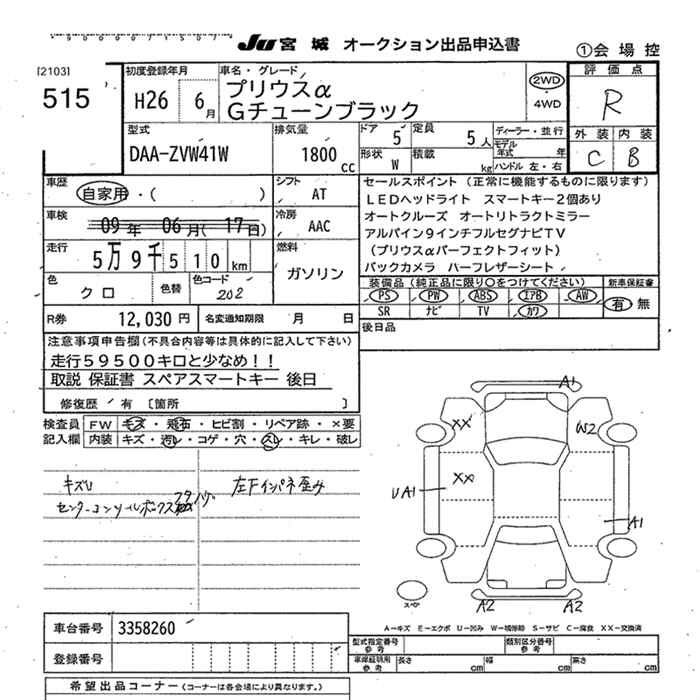 JU 宮城 オークション出品申込書
①会場控
[2103]
515
初度登録年月
H26 6月
車名・グレード
プリウスα
Gチューンブラック
2WD
4WD
評価点
R
外装 内装
C B
型式
DAA-ZVW41W
排気量
1800cc
ドア 5
定員 5人
形状 W
積載 kg
ディーラー・並行
モデル年式 年
ハンドル 左・右
車歴
自家用・( )
シフト
AT
車検
09年 06月(17日)
冷房
AAC
走行
5万9千510km
燃料
ガソリン
色
クロ
色替
色コード
202
セールスポイント(正常に機能するものに限ります)
LEDヘッドライト スマートキー2個あり
オートクルーズ オートリトラクトミラー
アルパイン9インチフルセグナビTV
(プリウスαパーフェクトフィット)
バックカメラ ハーフレザーシート
装備品(純正品に限り○をつけてください)
新車保証書
PS PW ABS エアB AW
SR ナビ TV カワ
有 無
R券 12,030円
名変通知期限 月 日
後日品
注意事項申告欄(不具合内容等は具体的に記入して下さい)
走行59500キロと少なめ!!
取説 保証書 スペアスマートキー 後日
修復歴/有 [箇所 ]
検査員記入欄
FW キズ・飛石・ヒビ割・リペア跡・×要
内装 キズ・汚レ・コゲ・穴・スレ・キレ・破レ
キズU
センターコンソールボックスフタ
左Fインパネ歪み
A1
XX
W2
XX
UA1
A1
スペア
A2
A2
A-キズ E-エクボ U-凹み W-補修跡 S-サビ C-腐食 XX-交換済
車台番号 3358260
登録番号
型式指定番号 参考
類別区分番号 参考
車庫証明用 参考
長さ cm
幅 cm
高さ cm
希望出品コーナー(コーナーは各会場により異なります。)